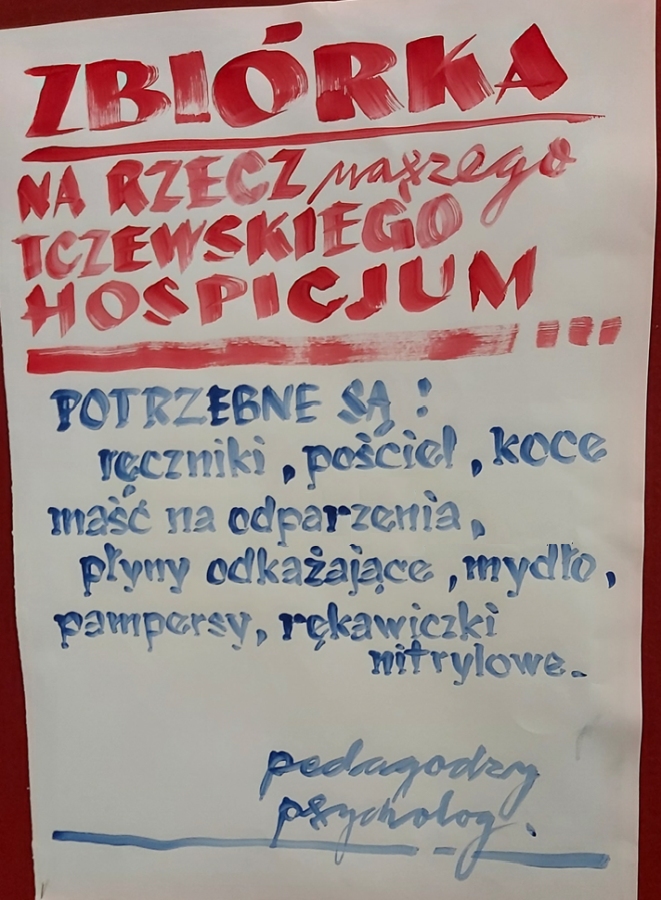 ZBIÓRKA
NA RZECZ naszego
TCZEWSKIEGO
HOSPICJUM...
POTRZEBNE SĄ:
ręczniki, pościel, koce
maść na odparzenia,
płyny odkażające, mydło,
pampersy, rękawiczki
nitrylowe.
pedagodzy
psycholog.